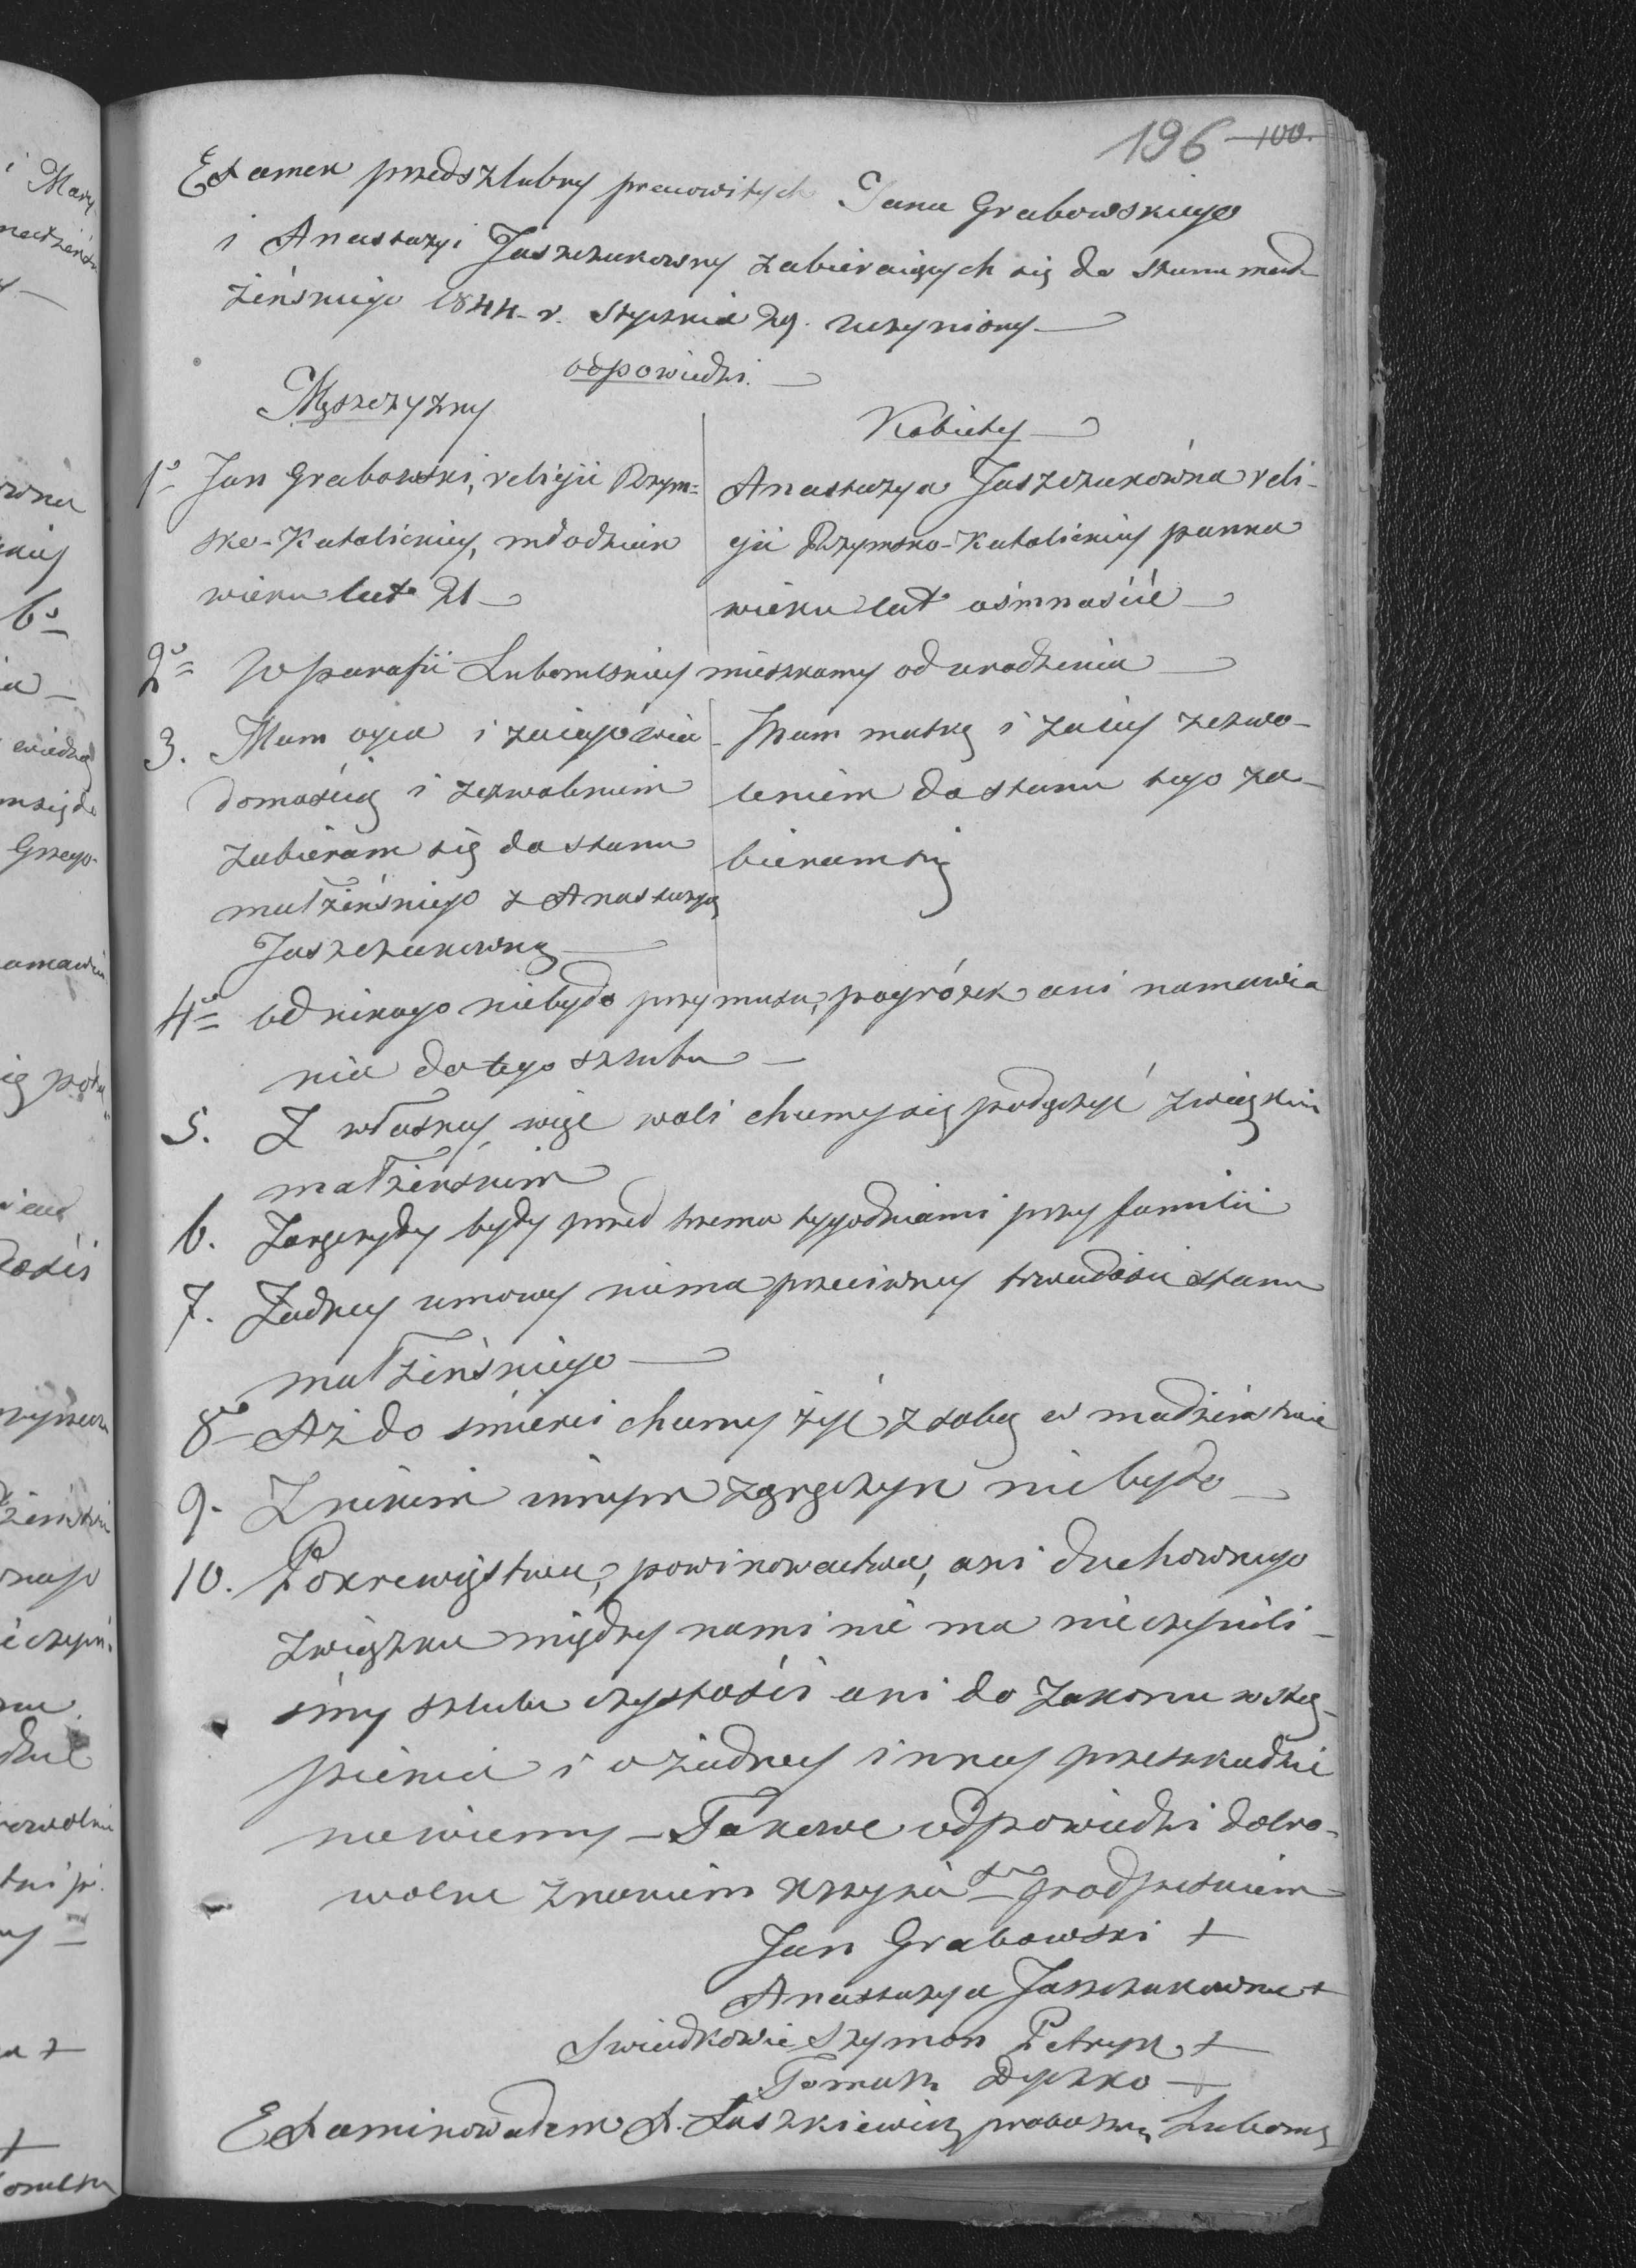 196 100.
Examen przedszlubny pracowitych Jana Grabowskiego
i Anastazyi Jaszczukowny zabieraiących się do stanu mał-
żeńskiego 1844 r. Stycznia 29. uczyniony
odpowiedzi.
Męszczyzny
Kobiety
1º Jan Grabowski, religii Rzym=
sko-Katolickiey, młodzian
wieku lat 21
Anastazya Jaszczukówna reli-
gii Rzymsko-Katolickiey panna
wieku lat ośmnaście
2º W parafii Lubomlskiey mieszkamy od urodzenia
3. Mam oyca i za iego wia-
domością i zezwoleniem
zabieram się do stanu
małżeńskiego z Anastazyą
Jaszczukowną
Mam matkę i za iey zezwo-
leniem do stanu tego za-
bieram się
4º od nikogo niebyło przymusu, pogróżek ani namawia
nia do tego szlubu
5. Z własney więc woli chcemy się podączyć związkiem
małżenskim
6. Zaręczyny były przed trzema tygodniami przy familii
7. Żadney umowy niema przeciwney trwałości stanu
małżeńskiego
8º Aż do śmierci chcemy żyć z sobą w małżeństwie
9. Z nikim innym zaręczyn niebyło
10. Pokrewięstwa, powinowactwa, ani duchownego
związku między nami nie ma nieczynili-
śmy szlubu czystości ani do zakonu wstą-
pienia i o żadney inney przeszkodzie
niewiemy - Takowe odpowiedzi dobro-
wolne znakiem krzyża podpisuiem
Jan Grabowski +
Anastazya Jaszczukowna +
Swiadkowie Szymon Petryk +
Tomasz Dyczko +
Examinowałem A. Łaszkiewicz proboszcz Luboml